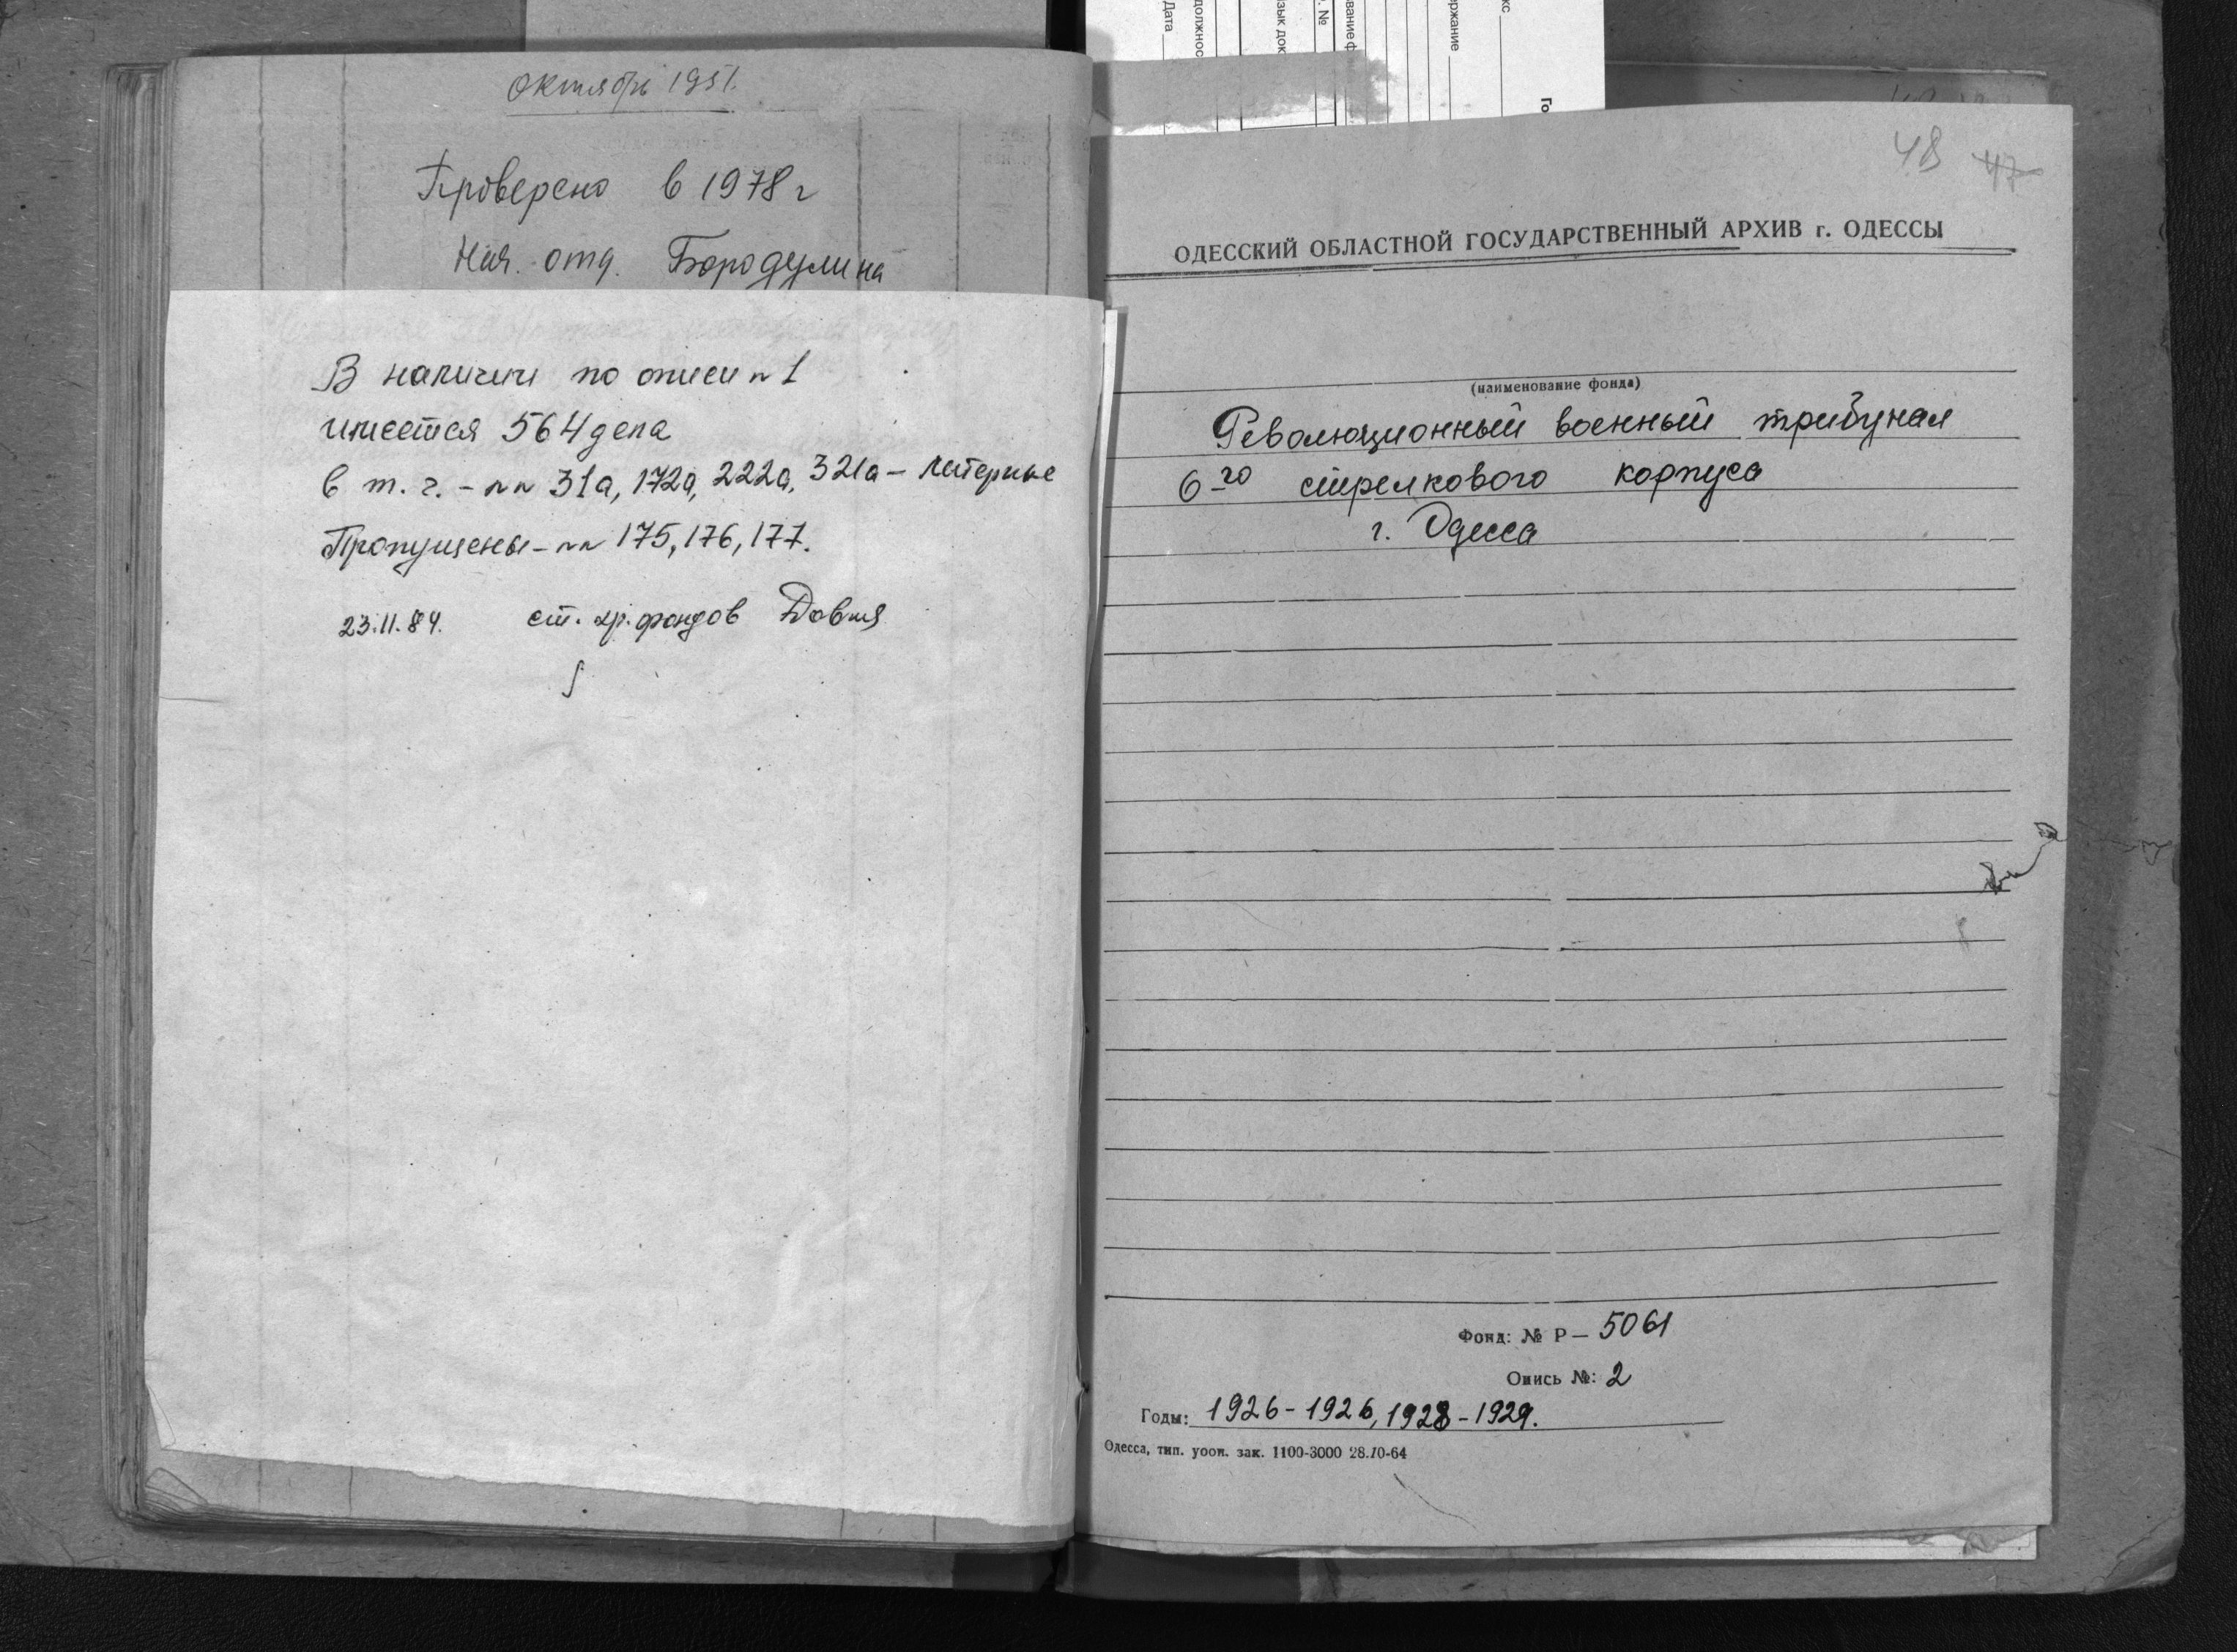 Октябрь 1951.
Проверено в 1978 г
Нач. отд. Бородулина
В наличии по описи № 1
имеется 564 дела
в т. ч. - №№ 31а, 172а, 222а, 321а - литерные
Пропущены - №№ 175, 176, 177.
23.11.84. ст. хр. фондов
Дата
должнос
зык док
. №
вание ф
ержание
кс
Го
48 47
ОДЕССКИЙ ОБЛАСТНОЙ ГОСУДАРСТВЕННЫЙ АРХИВ г. ОДЕССЫ
(наименование фонда)
Революционный военный трибунал
6-го стрелкового корпуса
г. Одесса
Фонд: № Р — 5061
Опись №: 2
Годы: 1926 - 1926, 1928 - 1929.
Одесса, тип. уооп. зак. 1100-3000 28.10-64